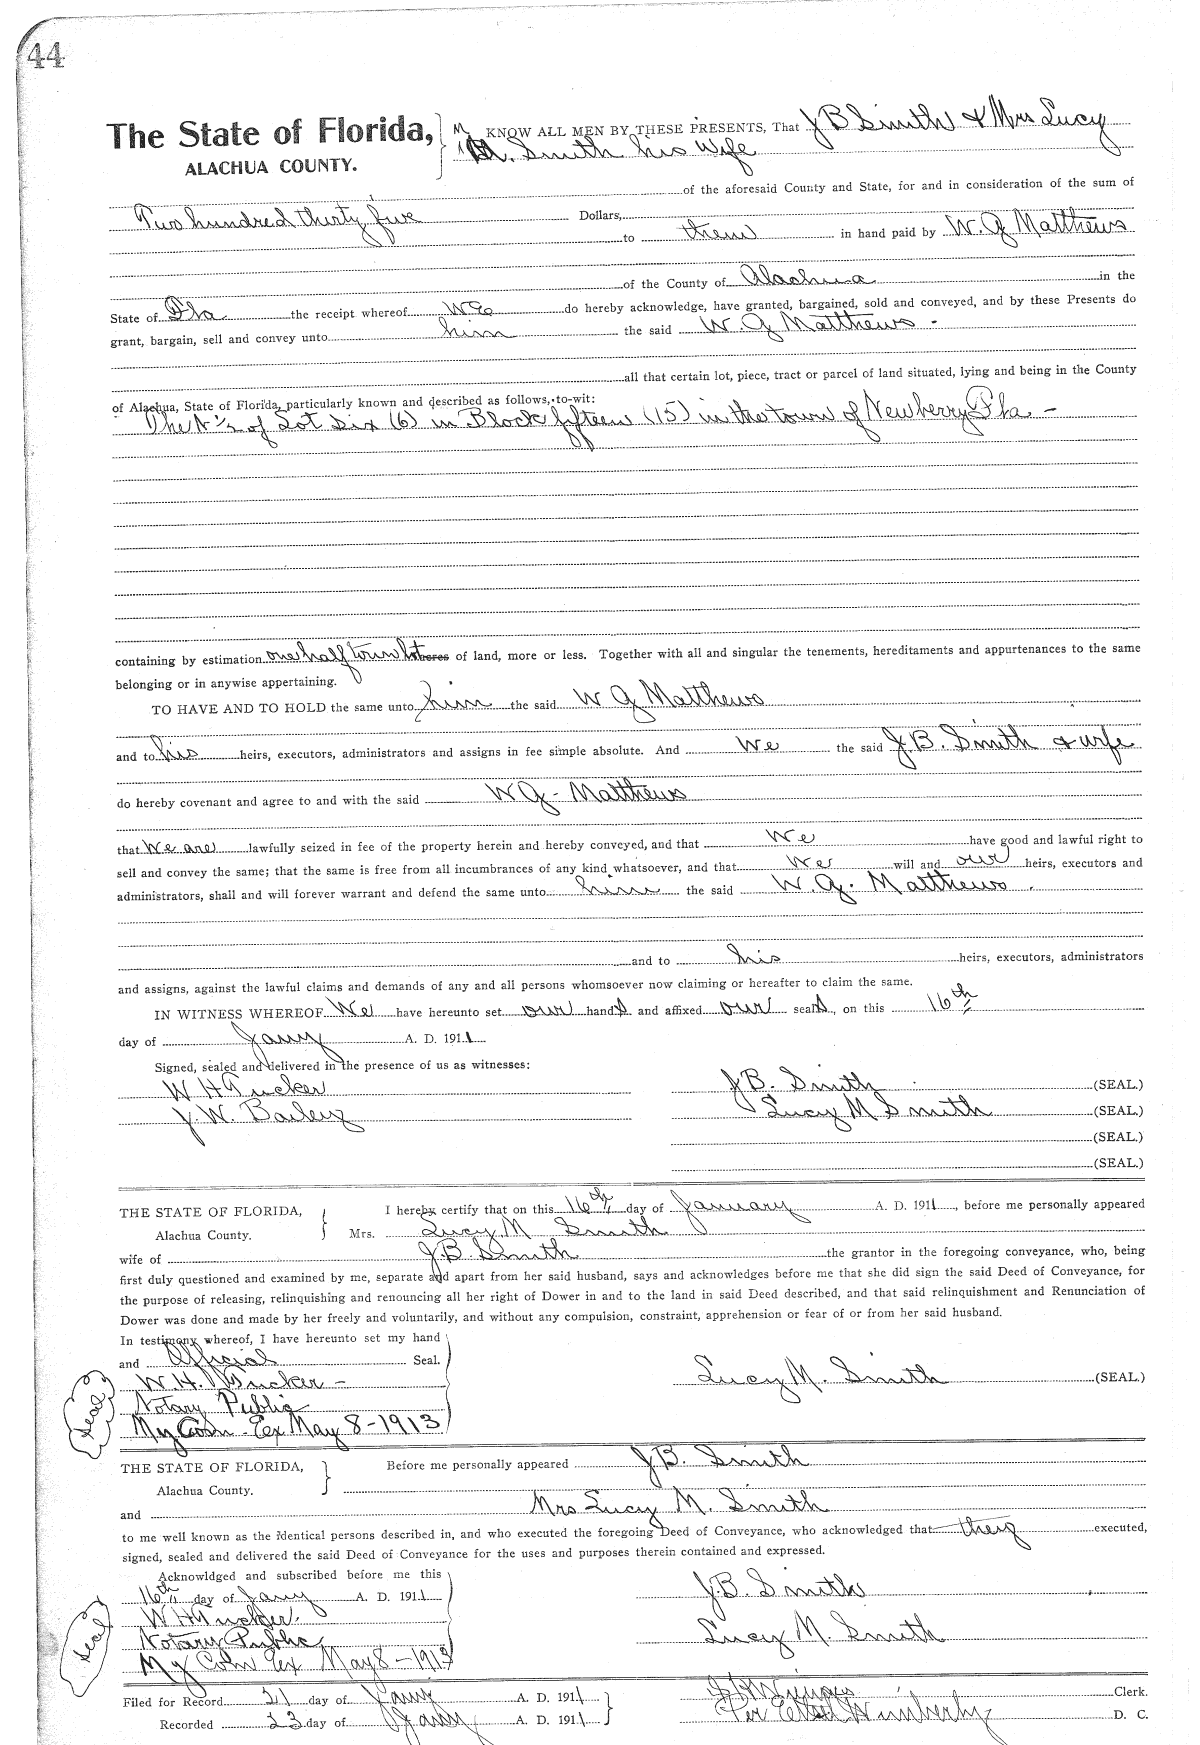 44
The State of Florida,
ALACHUA COUNTY.
KNOW ALL MEN BY THESE PRESENTS, That J B Smith & Mrs Lucy
M. Smith his wife
of the aforesaid County and State, for and in consideration of the sum of
Two hundred thirty five Dollars,
to them in hand paid by W. G Matthews
of the County of Alachua in the
State of Fla the receipt whereof We do hereby acknowledge, have granted, bargained, sold and conveyed, and by these Presents do
grant, bargain, sell and convey unto him the said W. G Matthews -
all that certain lot, piece, tract or parcel of land situated, lying and being in the County
of Alachua, State of Florida, particularly known and described as follows, to-wit:
The N ½ of Lot Six (6) in Block fifteen (15) in the town of Newberry Fla -
containing by estimation one half town lot acres of land, more or less. Together with all and singular the tenements, hereditaments and appurtenances to the same
belonging or in anywise appertaining.
TO HAVE AND TO HOLD the same unto him the said W G Matthews
and to his heirs, executors, administrators and assigns in fee simple absolute. And We the said J. B. Smith & wife
do hereby covenant and agree to and with the said W G - Matthews
that We are lawfully seized in fee of the property herein and hereby conveyed, and that We have good and lawful right to
sell and convey the same; that the same is free from all incumbrances of any kind whatsoever, and that We will and our heirs, executors and
administrators, shall and will forever warrant and defend the same unto him the said W. G. Matthews.
and to his heirs, executors, administrators
and assigns, against the lawful claims and demands of any and all persons whomsoever now claiming or hereafter to claim the same.
IN WITNESS WHEREOF We have hereunto set our hands and affixed our seals, on this 16th
day of Jany A. D. 1911
Signed, sealed and delivered in the presence of us as witnesses:
W H Tucker J B. Smith (SEAL.)
J. W. Bailey Lucy M Smith (SEAL.)
(SEAL.)
(SEAL.)
THE STATE OF FLORIDA, I hereby certify that on this 16th day of January A. D. 1911, before me personally appeared
Alachua County. Mrs. Lucy M Smith
wife of J. B Smith the grantor in the foregoing conveyance, who, being
first duly questioned and examined by me, separate and apart from her said husband, says and acknowledges before me that she did sign the said Deed of Conveyance, for
the purpose of releasing, relinquishing and renouncing all her right of Dower in and to the land in said Deed described, and that said relinquishment and Renunciation of
Dower was done and made by her freely and voluntarily, and without any compulsion, constraint, apprehension or fear of or from her said husband.
In testimony whereof, I have hereunto set my hand
and Official Seal.
W. H. Tucker - Lucy M. Smith (SEAL.)
Notary Public
Seal
My Com - Ex May 8-1913
THE STATE OF FLORIDA, Before me personally appeared J B. Smith
Alachua County.
and Mrs Lucy M. Smith
to me well known as the identical persons described in, and who executed the foregoing Deed of Conveyance, who acknowledged that they executed,
signed, sealed and delivered the said Deed of Conveyance for the uses and purposes therein contained and expressed.
Acknowldged and subscribed before me this
16th day of Jany A. D. 1911 J. B. Smith
W H Tucker.
Notary Public Lucy M. Smith
Seal
My Com Ex May 8-1913
Filed for Record 21 day of Jany A. D. 1911 Clerk.
Recorded 23 day of Jany A. D. 1911 Per Wimberly D. C.